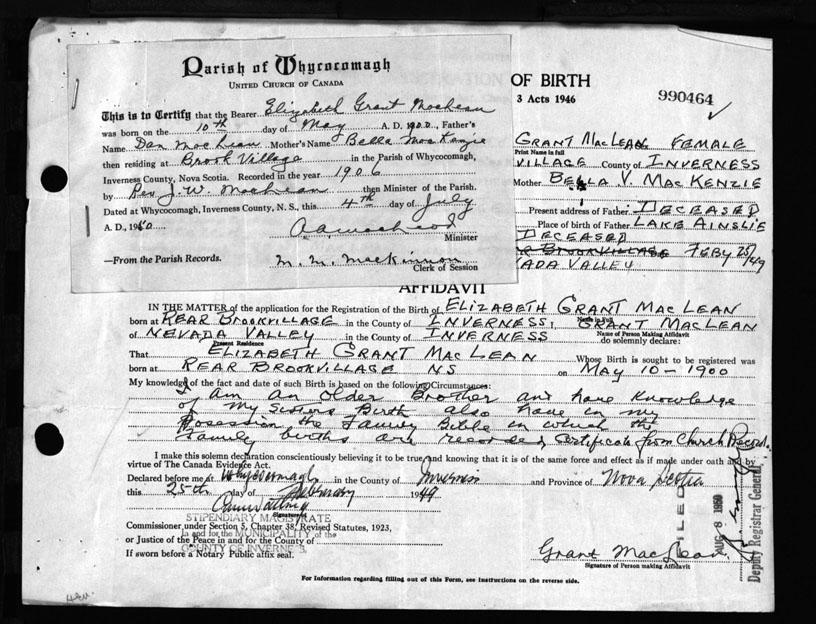 Parish of Whycocomagh
UNITED CHURCH OF CANADA
This is to Certify that the Bearer Elizabeth Grant MacLean
was born on the 10th day of May A. D. 1900, Father's
Name Dan MacLean Mother's Name Bella MacKenzie
then residing at Brook Village in the Parish of Whycocomagh,
Inverness County, Nova Scotia. Recorded in the year 1906
by Rev J. W. MacLean then Minister of the Parish.
Dated at Whycocomagh, Inverness County, N. S., this 4th day of July
A. D., 1960.
Minister
—From the Parish Records. M. M. MacKinnon
Clerk of Session
OF BIRTH
3 Acts 1946
990464
GRANT MACLEAN FEMALE
Print Name in full
VILLAGE County of INVERNESS
Mother BELLA V. MACKENZIE
Present address of Father DECEASED
Place of birth of Father LAKE AINSLIE
DECEASED
BROOKVILLAGE FEBY 25/49
ADA VALLEY
AFFIDAVIT
IN THE MATTER of the application for the Registration of the Birth of ELIZABETH GRANT MACLEAN
Name in Full
born at REAR BROOKVILLAGE in the County of INVERNESS, GRANT MACLEAN
Name of Person Making Affidavit
of NEVADA VALLEY in the County of INVERNESS do solemnly declare:
Present Residence
That ELIZABETH GRANT MACLEAN Whose Birth is sought to be registered was
born at REAR BROOKVILLAGE NS on MAY 10-1900
My knowledge of the fact and date of such Birth is based on the following Circumstances:
I am an older Brother and have knowledge
of my Sisters Birth also have in my
Posession the Family Bible in which the
family births are recorded, Certificate from Church Record.
I make this solemn declaration conscientiously believing it to be true and knowing that it is of the same force and effect as if made under oath and by
virtue of The Canada Evidence Act.
Declared before me at Whycocomagh in the County of Inverness and Province of Nova Scotia
this 25th day of February 1949
Signature
STIPENDIARY MAGISTRATE
Commissioner under Section 5, Chapter 38, Revised Statutes, 1923,
in and for the MUNICIPALITY of the
or Justice of the Peace in and for the County of
COUNTY OF INVERNESS
If sworn before a Notary Public affix seal.
FILED
AUG 8 1960
Deputy Registrar General
Grant MacLean
Signature of Person making Affidavit
For Information regarding filling out of this Form, see Instructions on the reverse side.